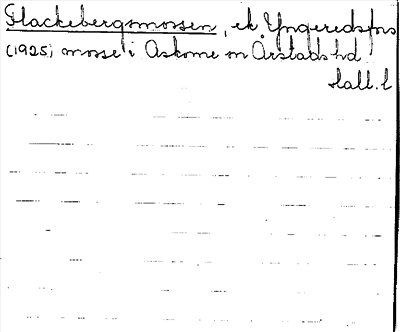 Flackebergsmossen, ek. Yngeredsfors
(1925) mosse i Askome sn Årstads hd
Hall. l